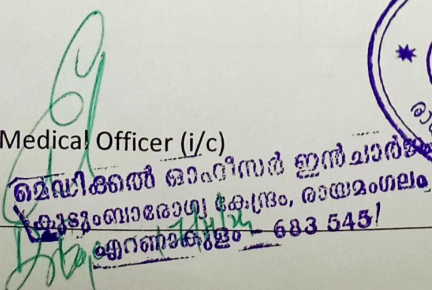 Medical Officer (i/c)
മെഡിക്കൽ ഓഫീസർ ഇൻചാർജ്ജ്
കുടുംബാരോഗ്യ കേന്ദ്രം, രായമംഗലം
എറണാകുളം - 683 545